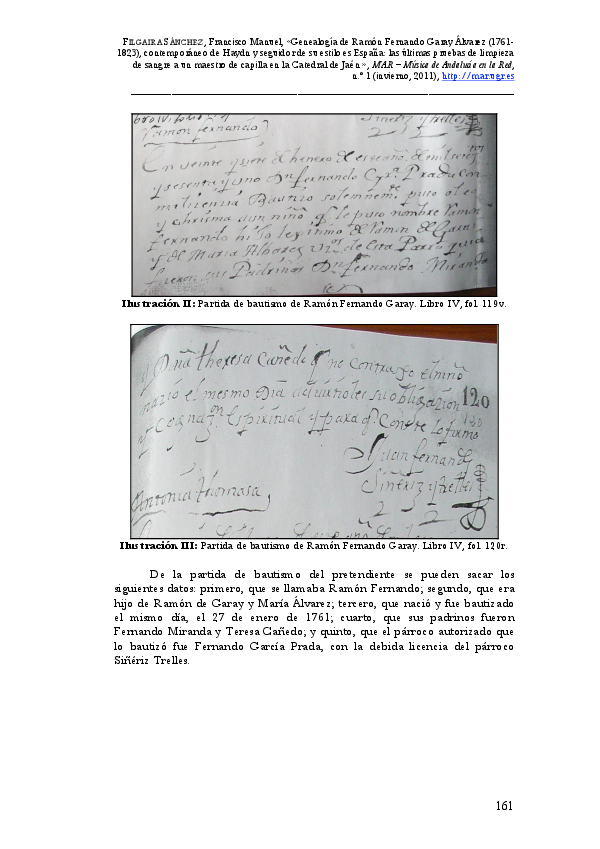 FILGAIRA SÁNCHEZ, Francisco Manuel, «Genealogía de Ramón Fernando Garay Álvarez (1761-
1823), contemporáneo de Haydn y seguidor de su estilo es España: las últimas pruebas de limpieza
de sangre a un maestro de capilla en la Catedral de Jaén», MAR – Música de Andalucía en la Red,
n.º 1 (invierno, 2011), http://mar.ugr.es
Ramon fernando
En veinte y siete de henero de este año de mil setez
y sesenta y uno Dn fernando Gra Prada con
mi licencia Bautizo solemnemte puso oleo
y chrisma a un niño q le puso nombre Ramon
fernando hijo legitimo de Ramon de Garai
y de Maria Albarez vznos de esta Parroquia
fueron sus Padrinos Dn fernando Miranda
Ilustración II: Partida de bautismo de Ramón Fernando Garay. Libro IV, fol. 119v.
Dña theresa Cañedo q no contraxo el niño
nazio el mesmo Dia advirtioles su obligazion 120
y Cognazn Espiritual y para q Conste lo firmo
Juan fernando
Siñeriz y trelles
Antonia thomasa
Ilustración III: Partida de bautismo de Ramón Fernando Garay. Libro IV, fol. 120r.
De la partida de bautismo del pretendiente se pueden sacar los
siguientes datos: primero, que se llamaba Ramón Fernando; segundo, que era
hijo de Ramón de Garay y María Álvarez; tercero, que nació y fue bautizado
el mismo día, el 27 de enero de 1761; cuarto, que sus padrinos fueron
Fernando Miranda y Teresa Cañedo; y quinto, que el párroco autorizado que
lo bautizó fue Fernando García Prada, con la debida licencia del párroco
Siñériz Trelles.
161